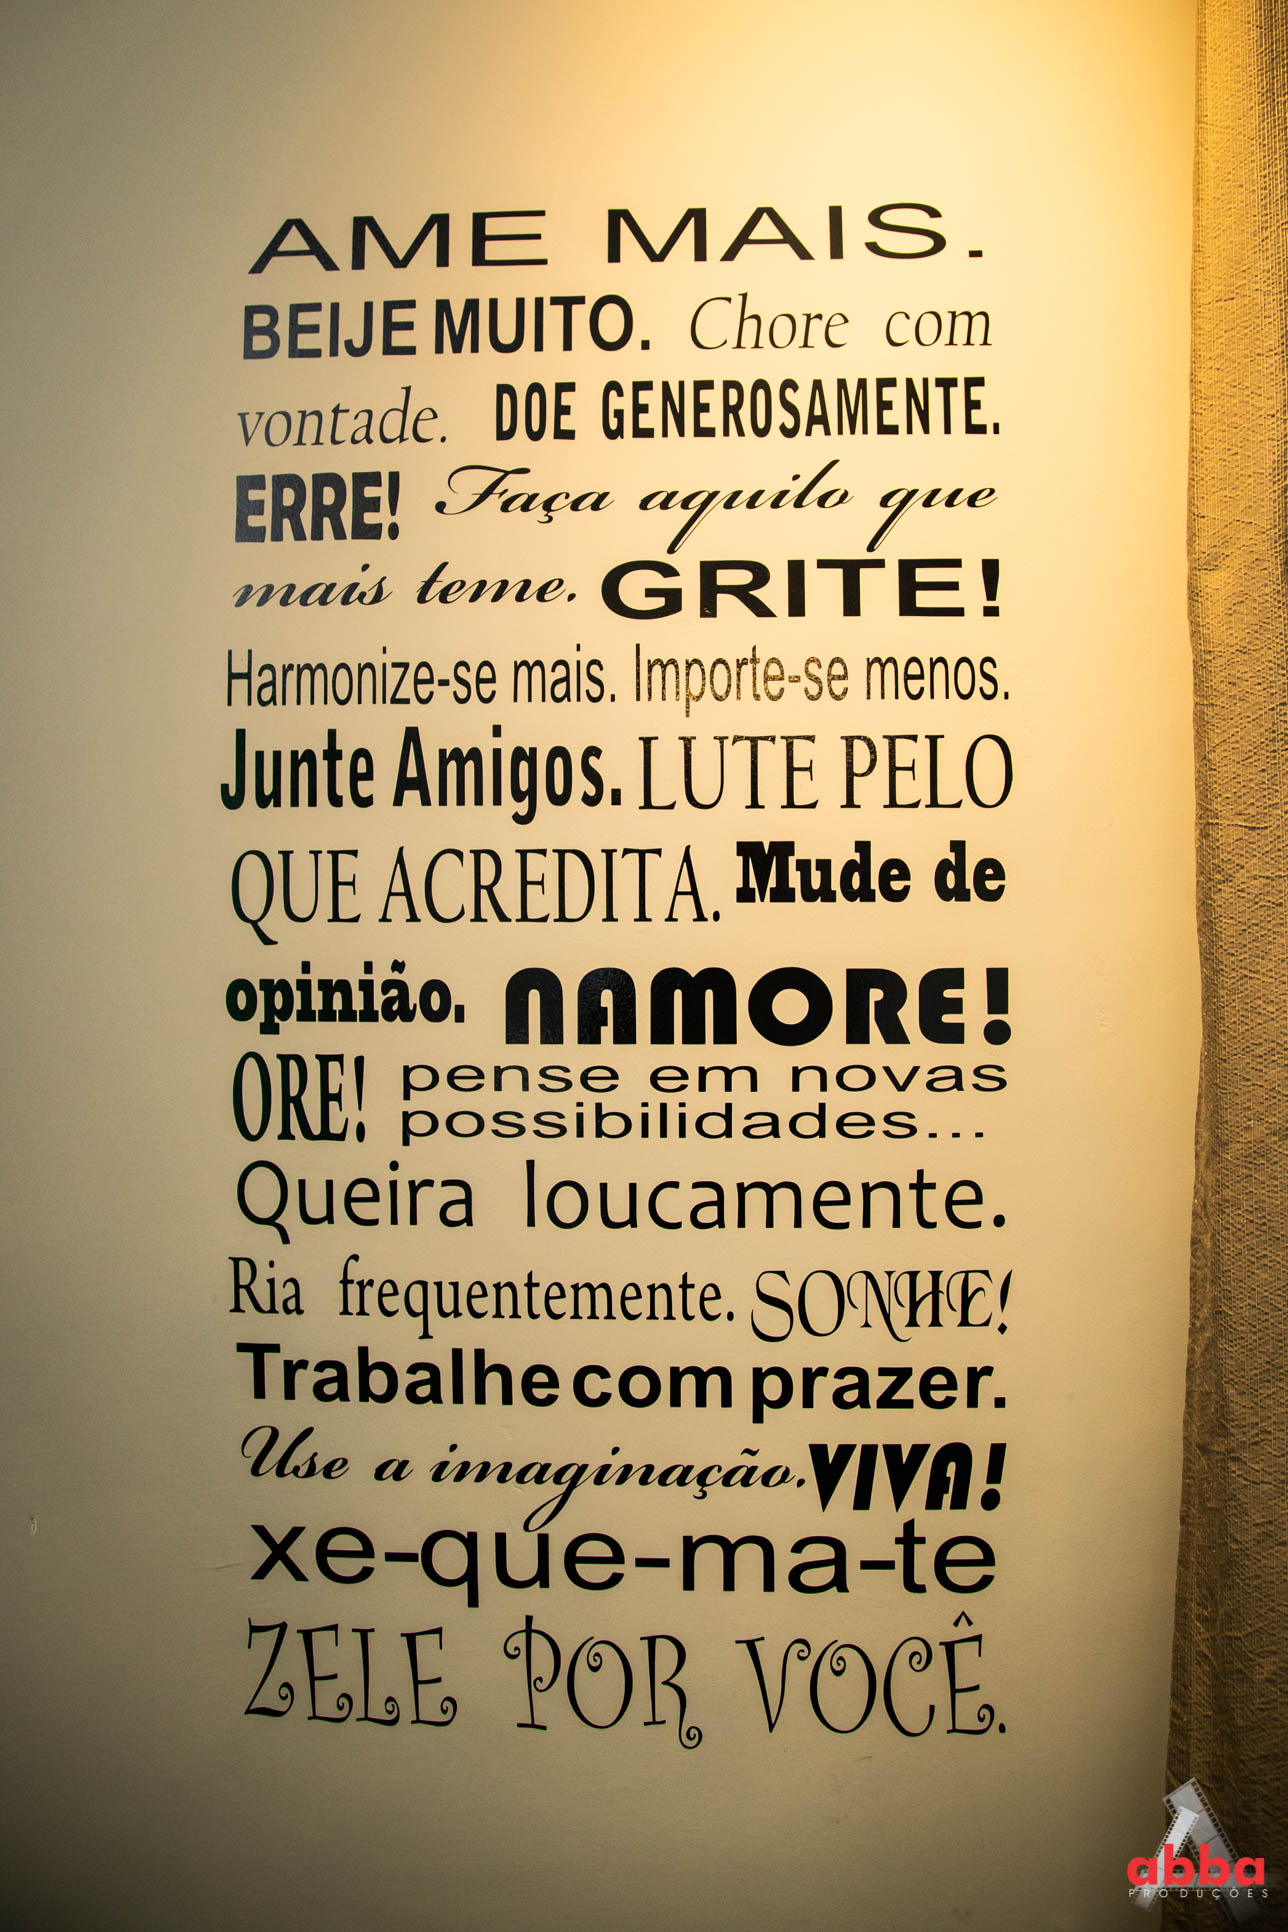 AME MAIS.
BEIJE MUITO. Chore com
vontade. DOE GENEROSAMENTE.
ERRE! Faça aquilo que
mais teme. GRITE!
Harmonize-se mais. Importe-se menos.
Junte Amigos. LUTE PELO
QUE ACREDITA. Mude de
opinião. NAMORE!
ORE! pense em novas
possibilidades...
Queira loucamente.
Ria frequentemente. SONHE!
Trabalhe com prazer.
Use a imaginação. VIVA!
xe-que-ma-te
ZELE POR VOCÊ.
abba
PRODUÇÕES